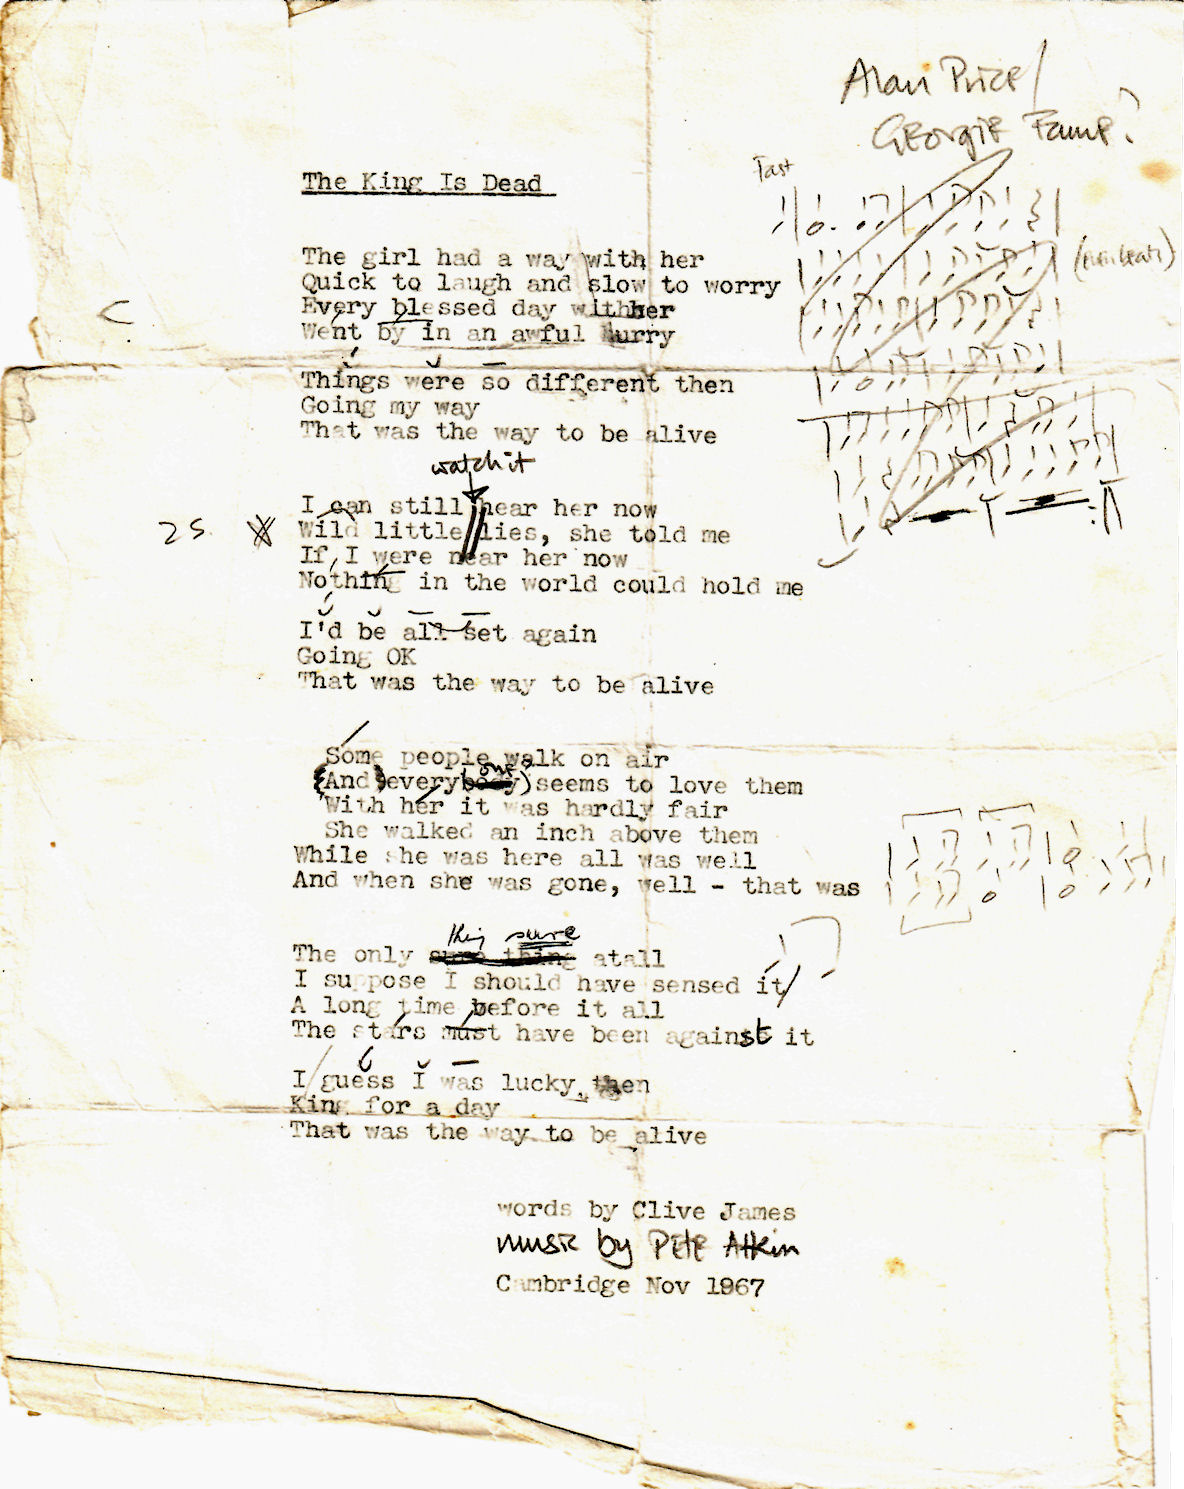 Alan Price/
Georgie Fame?
Fast
The King Is Dead
(even beats)
The girl had a way with her
Quick to laugh and slow to worry
Every blessed day with her
Went by in an awful hurry
C
Things were so different then
Going my way
That was the way to be alive
watch it
I can still hear her now
2S. Wild little lies, she told me
If I were near her now
Nothing in the world could hold me
I'd be all set again
Going OK
That was the way to be alive
Some people walk on air
one
(And) everybody) seems to love them
With her it was hardly fair
She walked an inch above them
While she was here all was well
And when she was gone, well - that was
thing sure
The only sure thing atall
I suppose I should have sensed it/
A long time before it all
The stars must have been against it
I guess I was lucky, then
King for a day
That was the way to be alive
words by Clive James
music by Pete Atkin
Cambridge Nov 1967